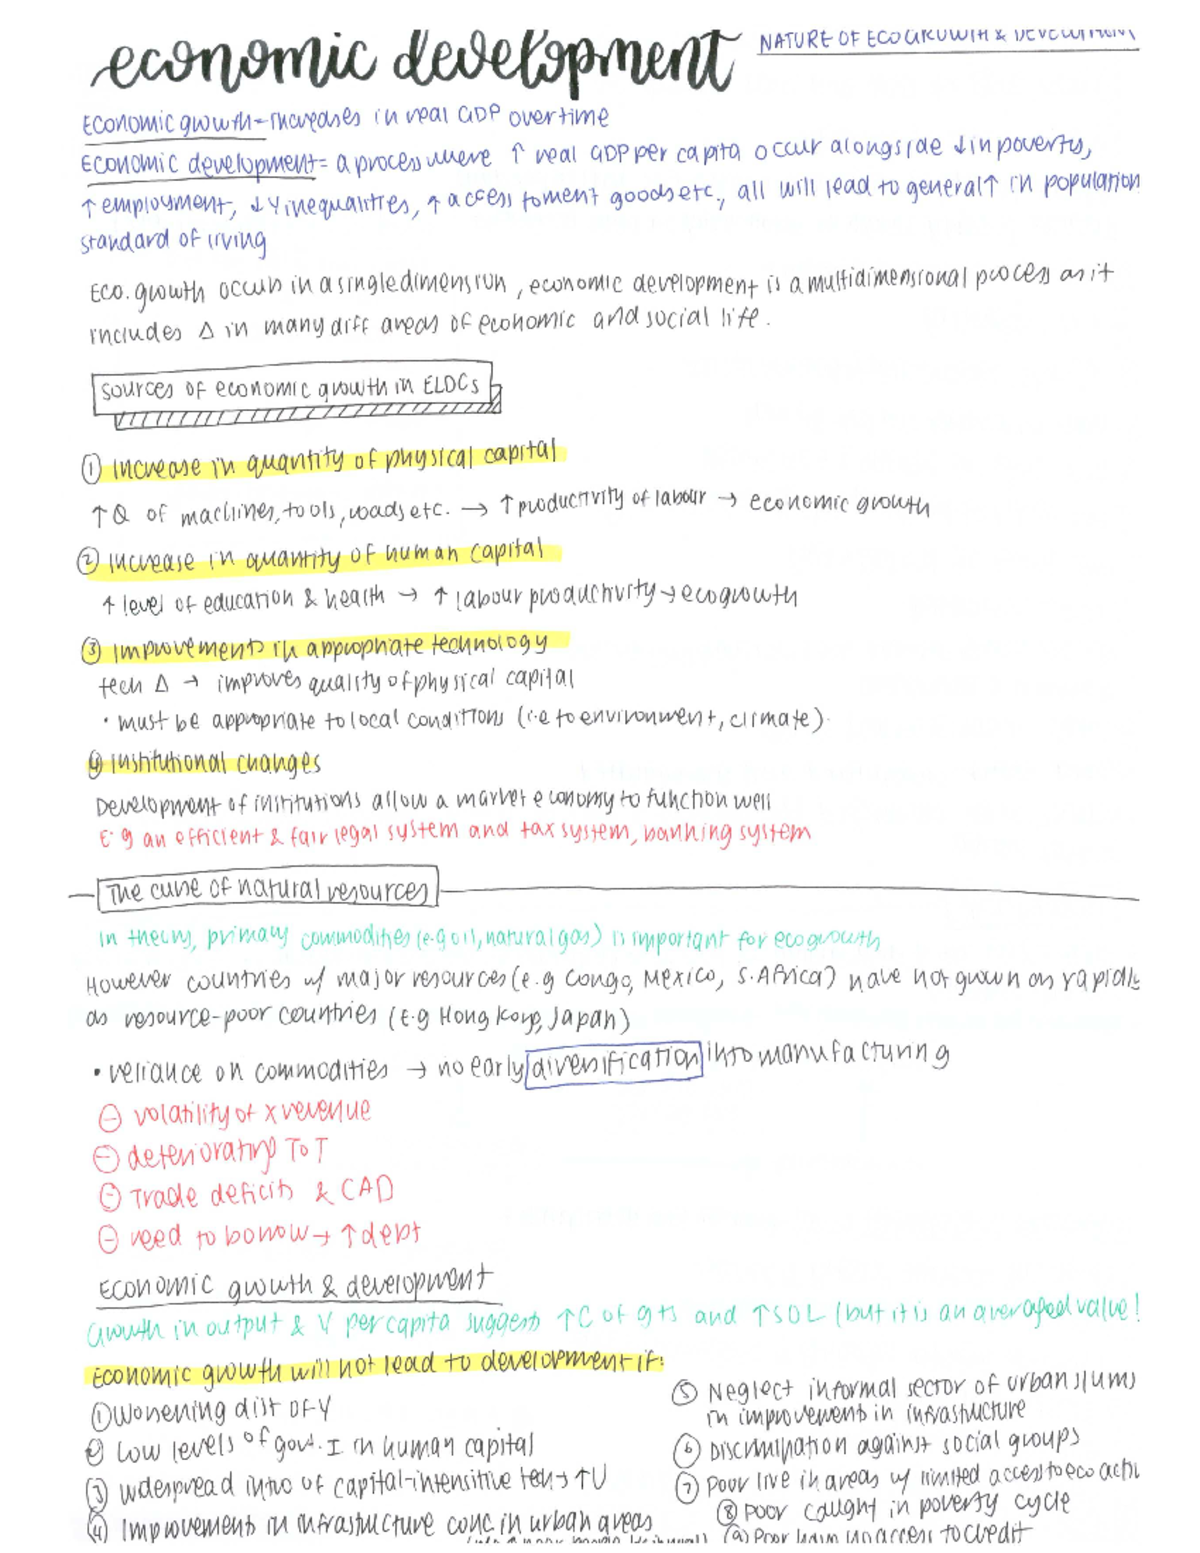 economic development
NATURE OF ECO GROWTH & DEVELOPMENT
Economic growth = Increases in real GDP over time
Economic development = a process where ↑ real GDP per capita occur alongside ↓ in poverty,
↑ employment, ↓ Y inequalities, ↑ access to merit goods etc., all will lead to general ↑ in population
standard of living
Eco. growth occurs in a single dimension, economic development is a multidimensional process as it
includes Δ in many diff areas of economic and social life.
Sources of economic growth in ELDCs
① Increase in quantity of physical capital
↑ Q of machines, tools, roads etc. → ↑ productivity of labour → economic growth
② Increase in quantity of human capital
↑ level of education & health → ↑ labour productivity → eco growth
③ Improvements in appropriate technology
tech Δ → improves quality of physical capital
• must be appropriate to local conditions (i.e to environment, climate).
④ Institutional changes
Development of institutions allow a market economy to function well
E.g an efficient & fair legal system and tax system, banking system
The curse of natural resources
In theory, primary commodities (e.g oil, natural gas) is important for eco growth
However countries w/ major resources (e.g Congo, Mexico, S.Africa) have not grown as rapidly
as resource-poor countries (E.g Hong Kong, Japan)
• reliance on commodities → no early diversification into manufacturing
⊖ volatility of X revenue
⊖ deteriorating ToT
⊖ Trade deficits & CAD
⊖ need to borrow → ↑ debt
Economic growth & development
Growth in output & Y per capita suggests ↑C of g+s and ↑SOL (but it is an averaged value!
Economic growth will not lead to development if:
① Worsening dist of Y
② Low levels of govt. I in human capital
③ Widespread intro of capital-intensive tech → ↑U
④ Improvement in infrastructure conc. in urban areas
⑤ Neglect informal sector of urban slums
in improvement in infrastructure
⑥ Discrimination against social groups
⑦ Poor live in areas w/ limited access to eco acti
⑧ Poor caught in poverty cycle
⑨ Poor have no access to credit